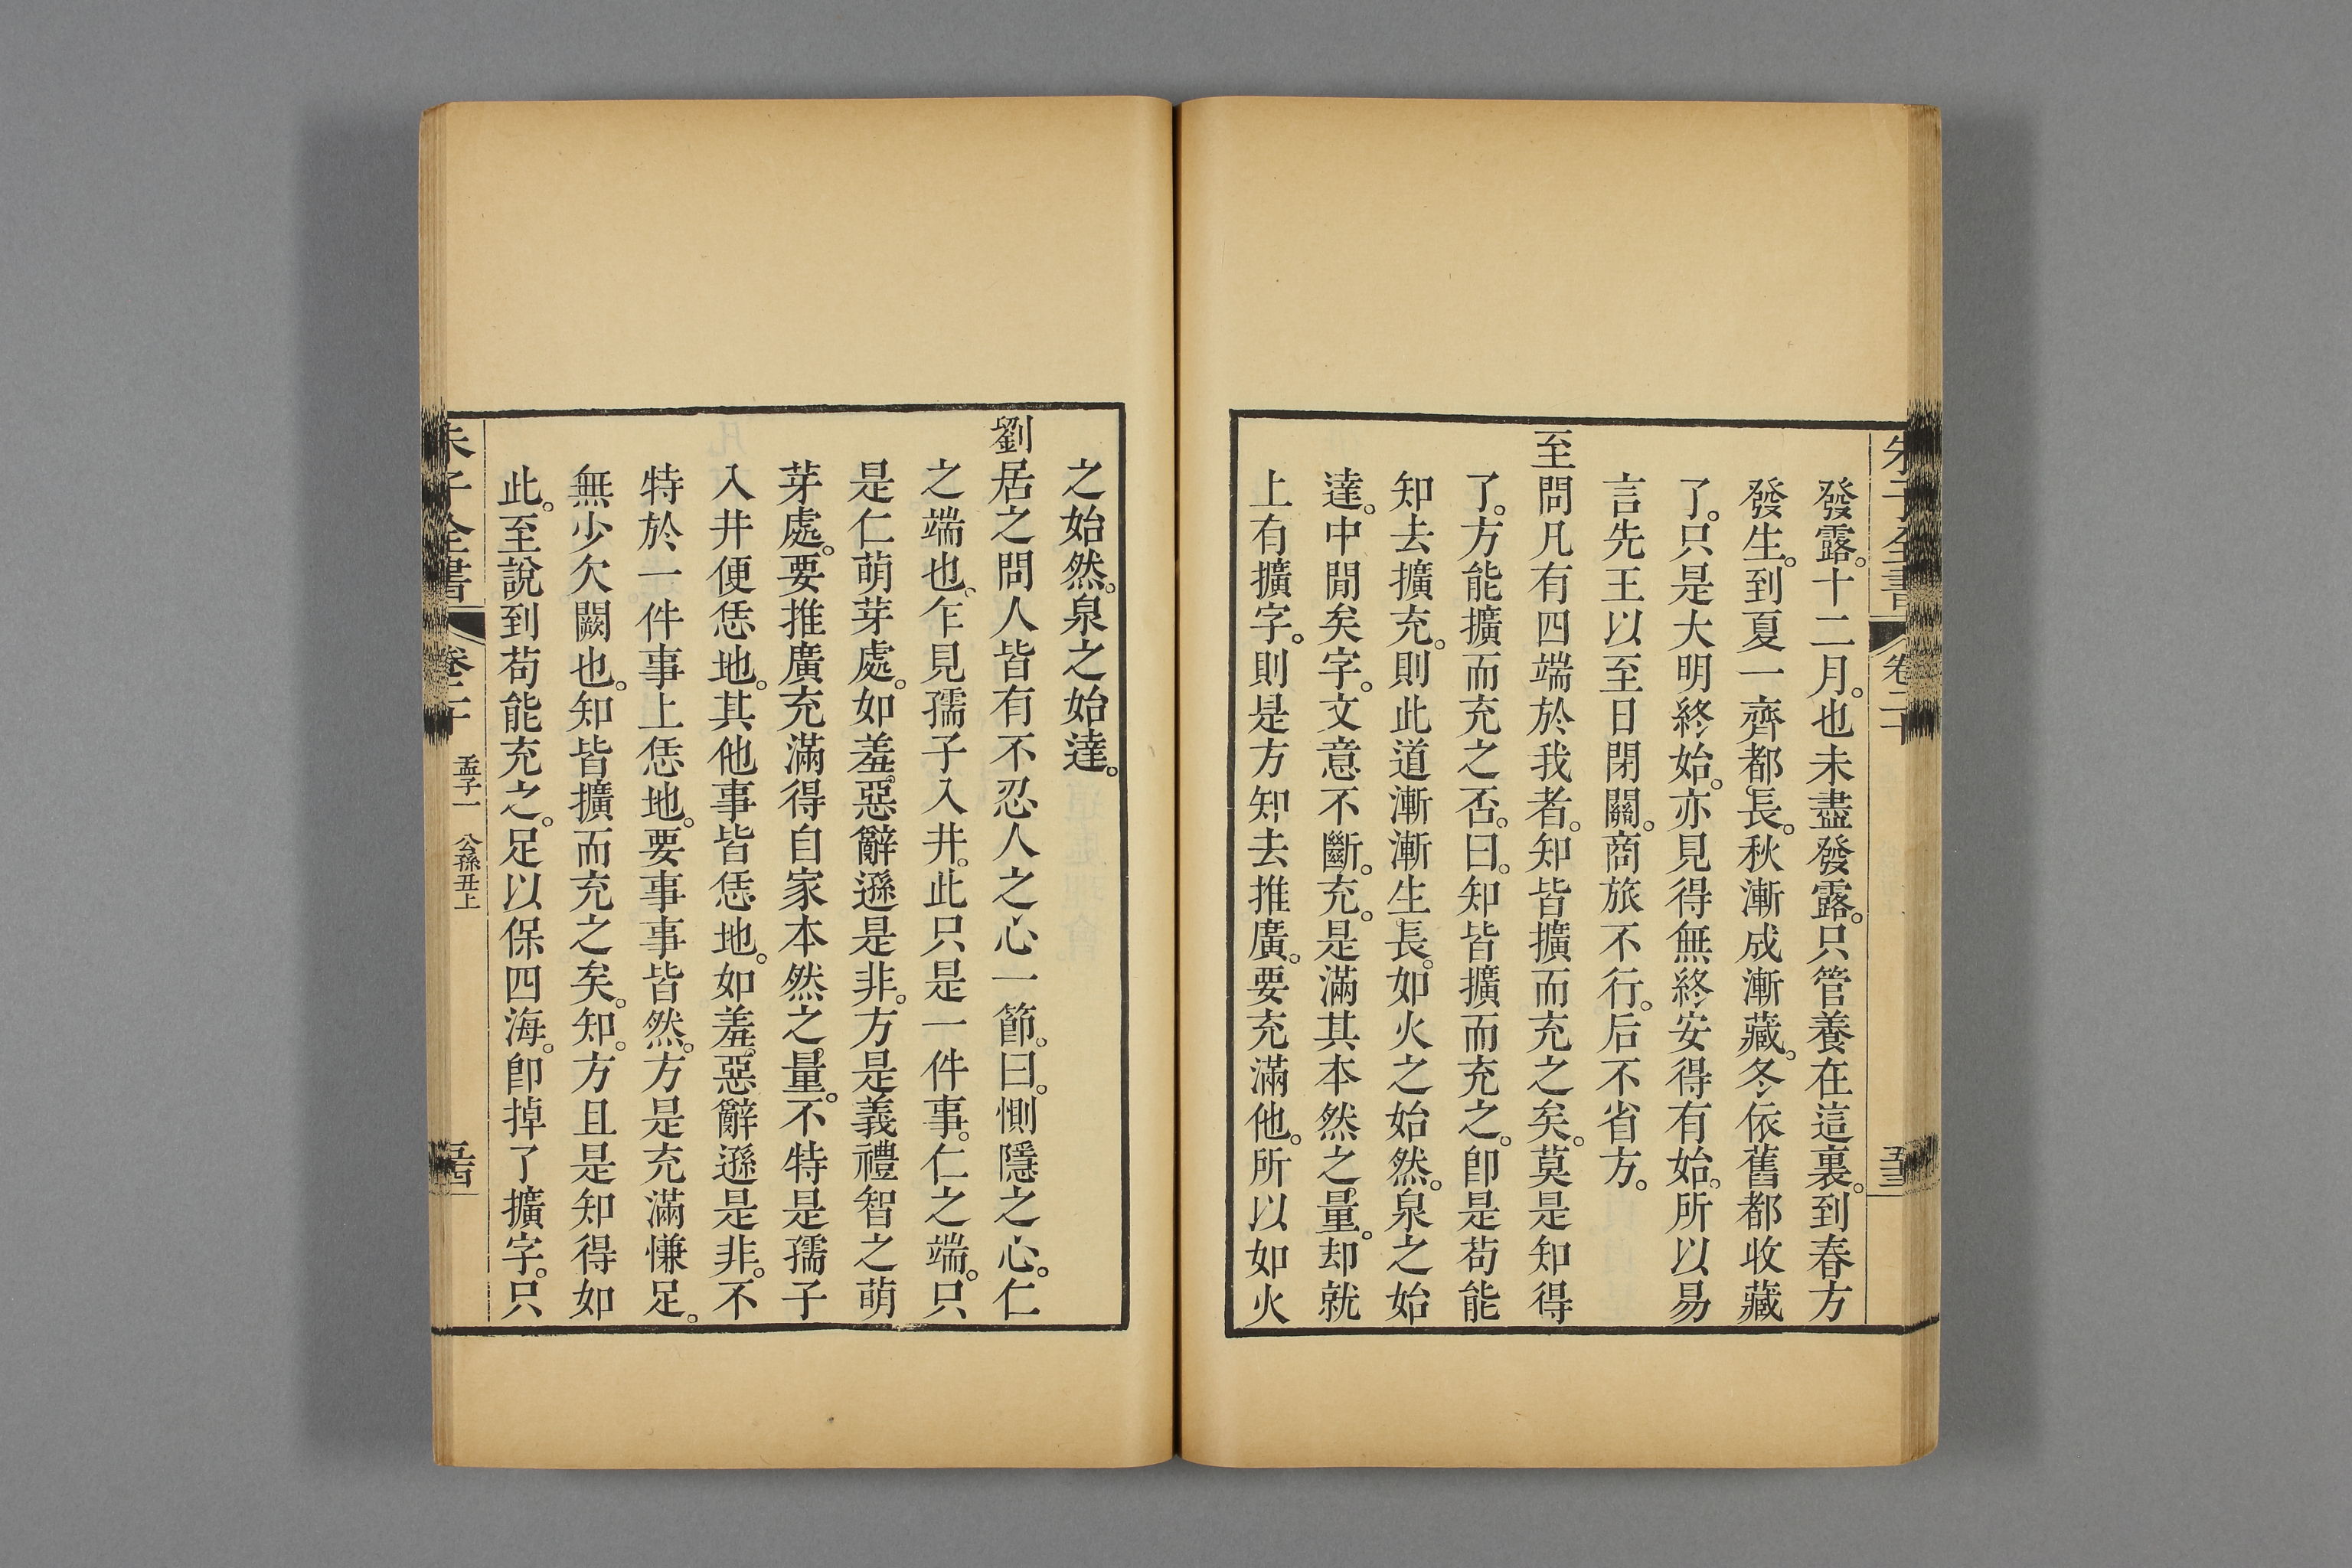 朱子全書 卷二十
發露。十二月。也未盡發露。只管養在這裏。到春方
發生。到夏一齊都長。秋漸成漸藏。冬依舊都收藏
了。只是大明終始。亦見得無終安得有始。所以易
言先王以至日閉關。商旅不行。后不省方。
至問凡有四端於我者。知皆擴而充之矣。莫是知得
了。方能擴而充之否。曰。知皆擴而充之。卽是苟能
知去擴充。則此道漸漸生長。如火之始然。泉之始
達。中閒矣字。文意不斷。充。是滿其本然之量。却就
上有擴字。則是方知去推廣。要充滿他。所以如火
之始然。泉之始達。
劉居之問人皆有不忍人之心一節。曰。惻隱之心。仁
之端也、乍見孺子入井。此只是一件事。仁之端。只
是仁萌芽處。如羞惡辭遜是非。方是義禮智之萌
芽處。要推廣充滿得自家本然之量。不特是孺子
入井便恁地。其他事皆恁地。如羞惡辭遜是非。不
特於一件事上恁地。要事事皆然。方是充滿慊足。
無少欠闕也。知皆擴而充之矣。知。方且是知得如
此。至說到苟能充之。足以保四海。卽掉了擴字。只
朱子全書 卷二十 孟子一 公孫丑上